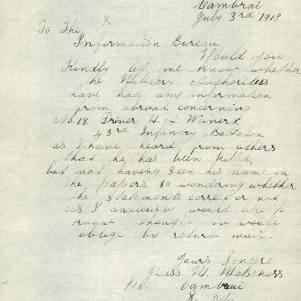 Cambrai
July 3rd 1918
To The
Information Bureau
Would you
Kindly let me know whether
the Military Authorities
have had any information
from abroad concerning
No. 18. Driver H. J.
43rd Infantry Battalion
as I have heard from others
that he has been killed,
but not having seen his name in
the papers so wondering whether
the statements correct or not
As I anxious would like to
know though so would
oblige by return mail.
Yours Sincere
Miss M.
Cambrai